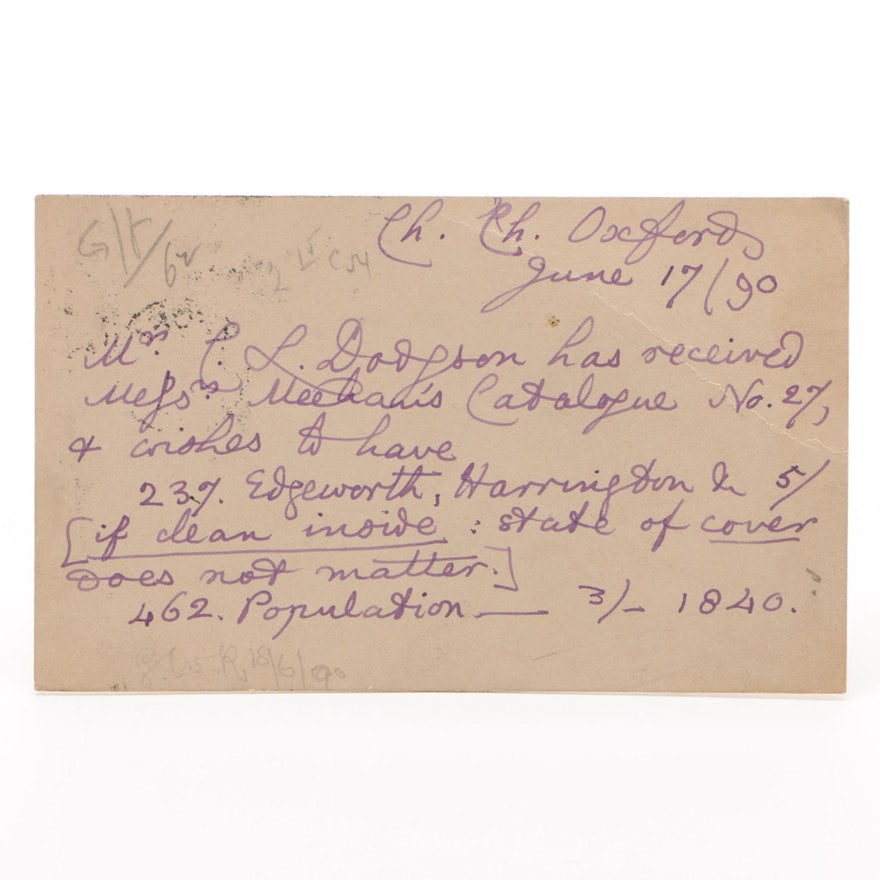 Ch. Ch. Oxford,
June 17/90
Mr. C. L. Dodgson has received
Messrs Meehan's Catalogue No. 27,
& wishes to have
237. Edgeworth, Harrington & 5/
[if clean inside : state of cover
does not matter.]
462. Population — 3/– 1840.
18/6/90